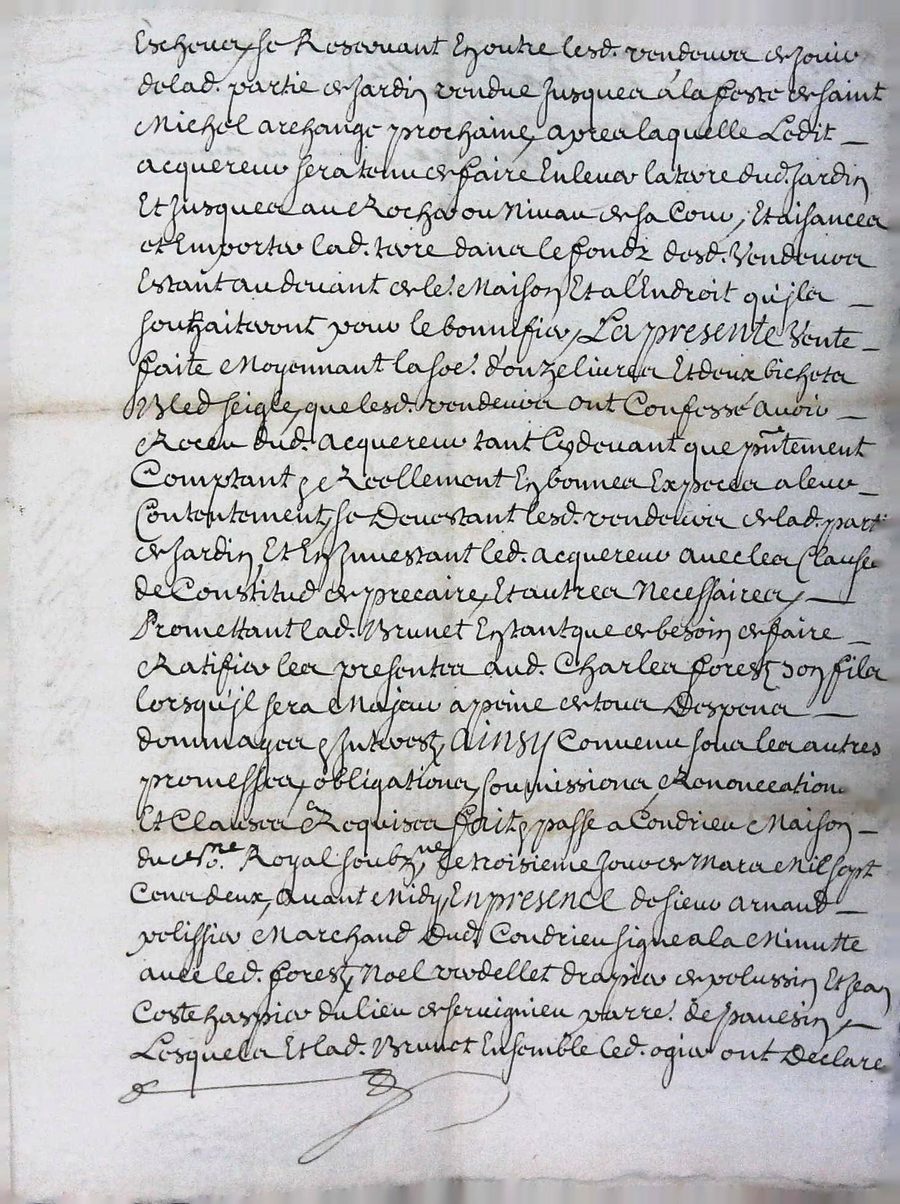 Escheus, se Reservant En outre lesd. vendeurs de Jouir
de lad. partie de Jardin vendue Jusques a la feste de saint
Michel archange prochaine, apres laquelle Ledit
acquereur sera tenu de faire Enlever la terre dud. Jardin
Et Jusques au Rocher ou Niveau de sa Cour, Et aisances
et Emporter lad. terre dans le fondz desd. Vendeurs
Estant au devant de le. Maison Et a l'Endroit qu'jls
souhaiteront pour le bonnifier, La presente Vente
faite Moyennant la soe. d'onze livres Et deux bichets
Bled seigle, que lesd. vendeurs ont Confessé avoir
Receu dud. acquereur tant Cy devant que pntement
Comptant & Reellement En bonnes Expeces a leur
Contentement, se Devestant lesd. vendeurs de lad. parti
de Jardin, Et En Investant led. acquereur avec les Clauses
de Constitud de precaire, Et autres Necessaires,
Promettant lad. Brunet En tant que de besoin de faire
Ratifier les presentes aud. Charles forest son fils
lorsqu'jl sera Majeur a peine de tous Despens
dommages & Interest, Ainsy Convenu sous les autres
promesses, obligations, soumissions, Renonceation
Et Clauses a Requises fait & passe a Condrieu Maison
du no.re Royal soubz.ne, Le troisieme Jour de Mars Mil sept
Cens deux, avant Midy, En presence de sieur arnaud
pelissier Marchand Dud. Condrieu signe a la Minutte
avec led. forest, Noel verdellet drapier de pelussin Et Jean
Coste haspier du lieu de servignieu parre. de pavesin,
Lesquels Et lad. Brunet Ensemble led. ogier ont Declare